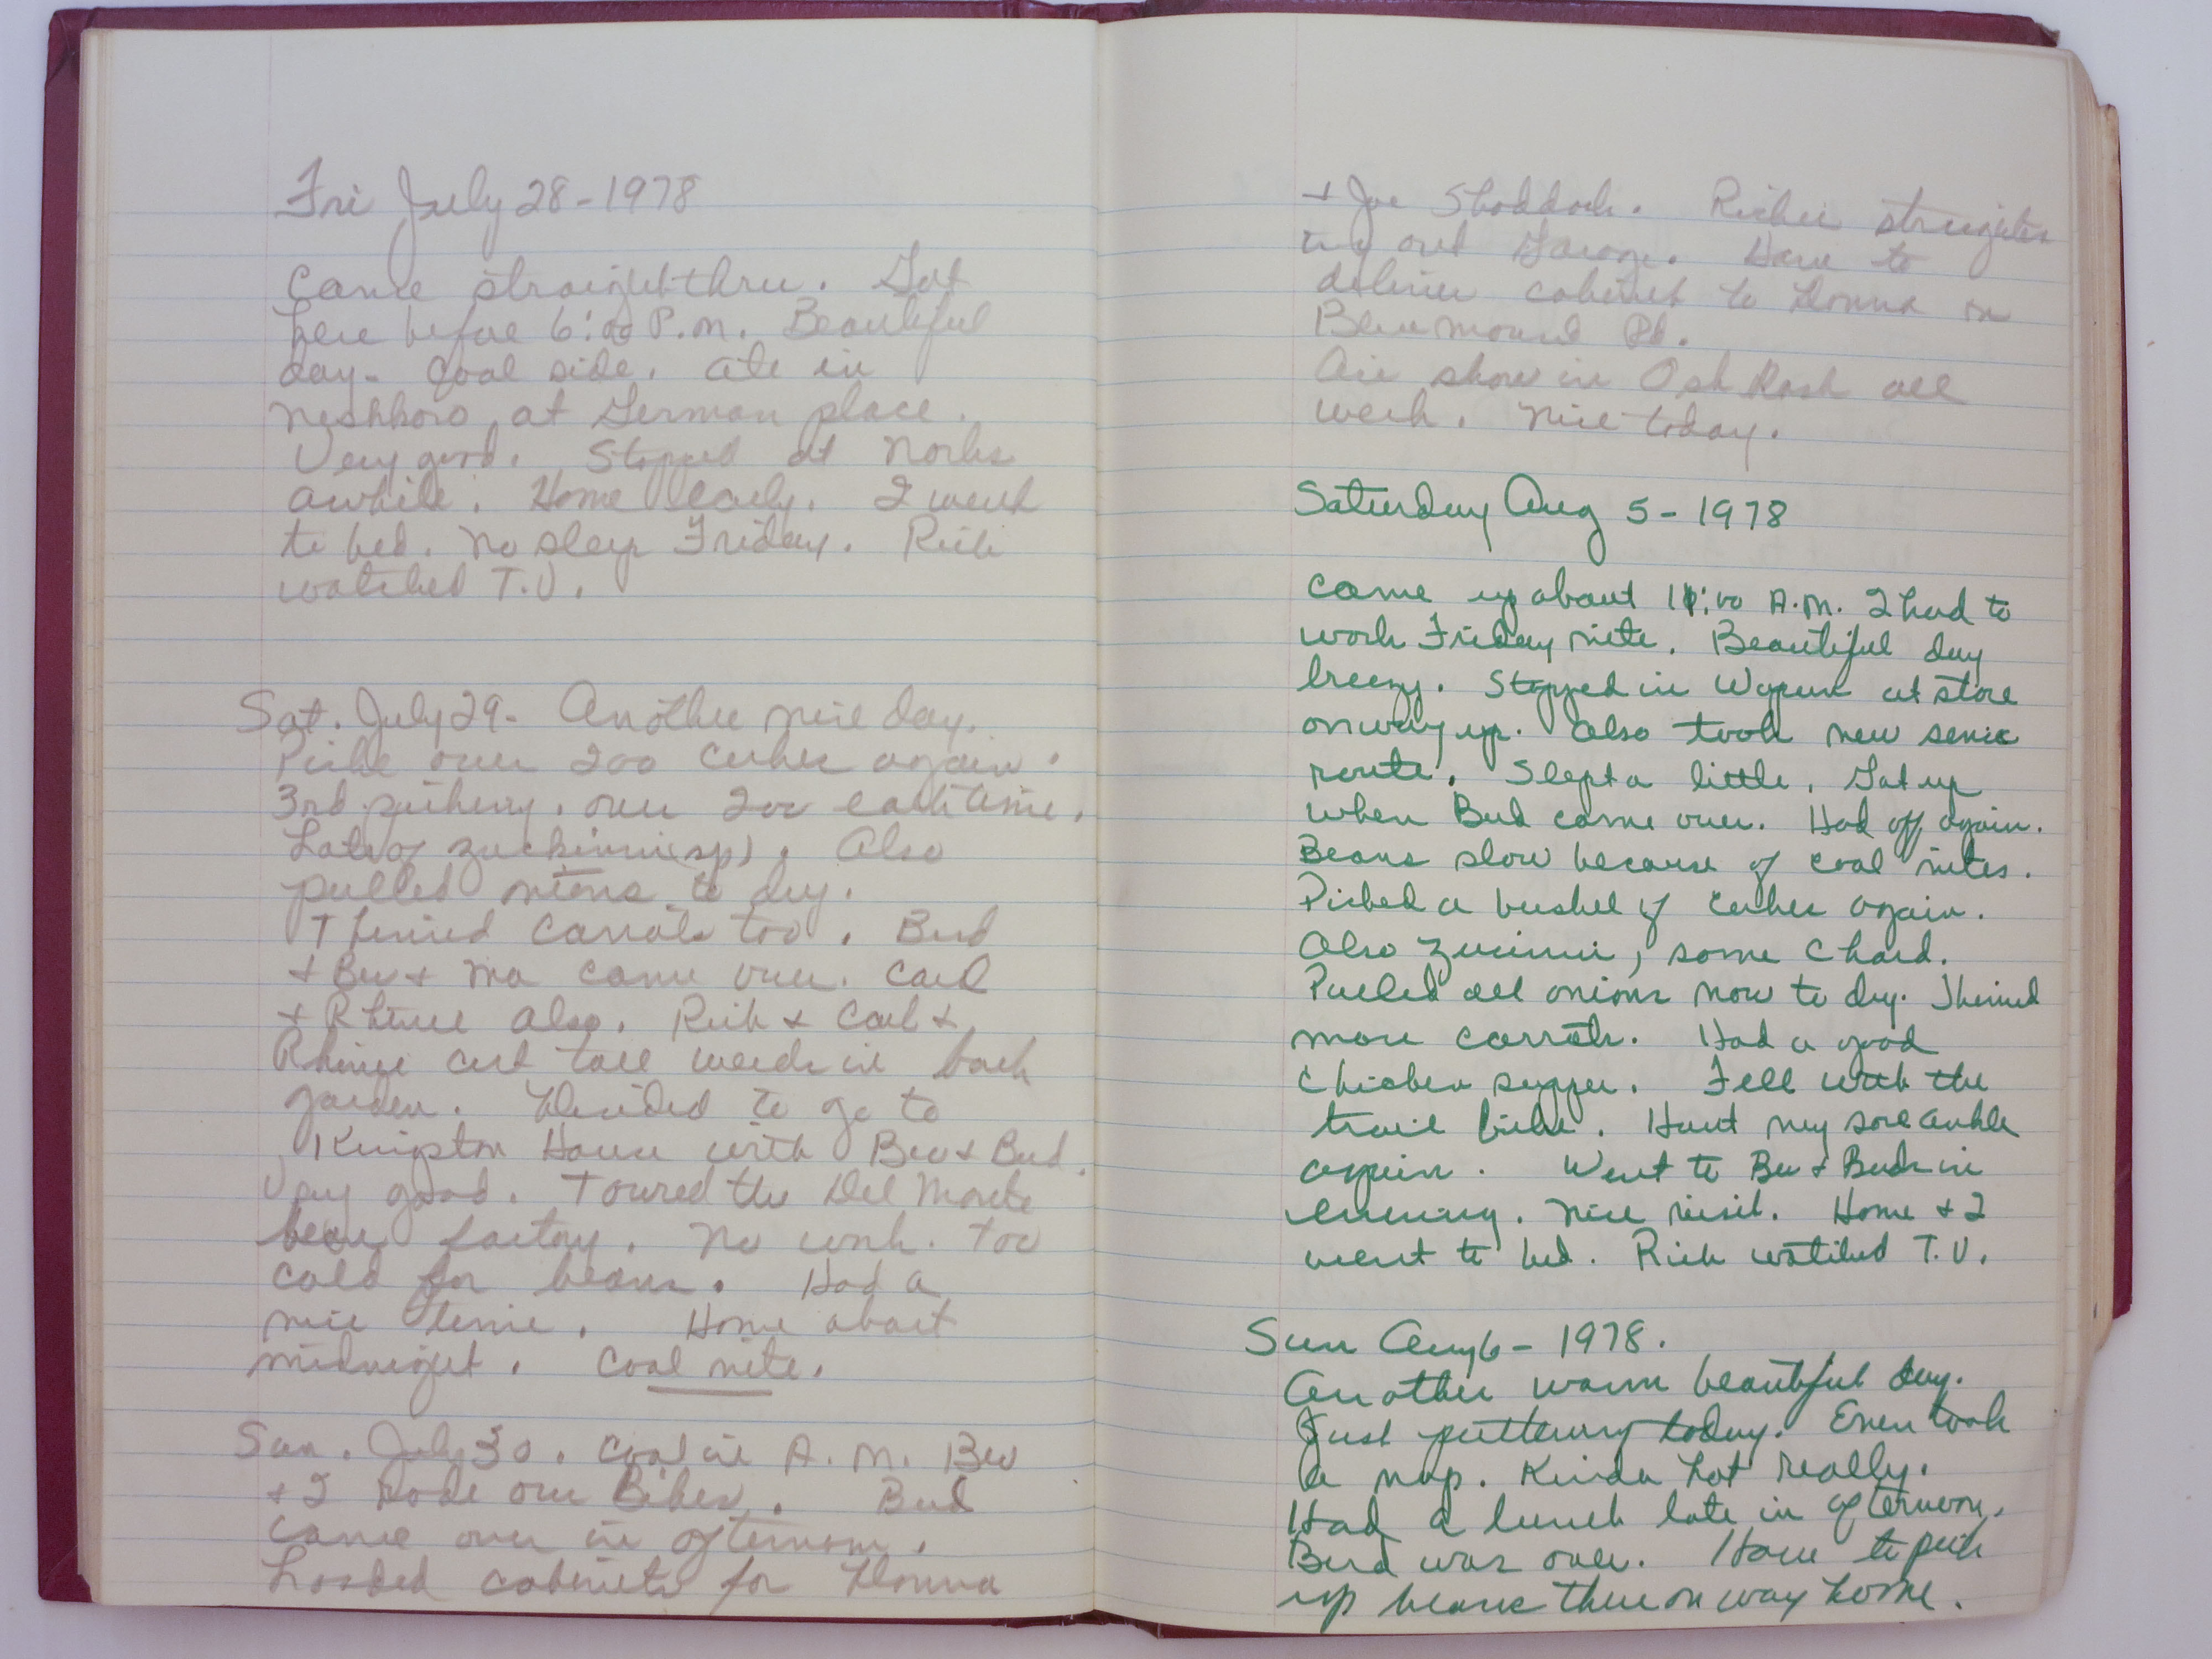 Fri July 28-1978
Came straight thru. Got
here before 6:00 P.M. Beautiful
day. Cool side. Ate in
Neshkoro at German place.
Very good. Stopped at Norbs
awhile. Home early. I went
to bed. No sleep Friday. Rich
watched T.V.
Sat. July 29- Another nice day.
Picke over 200 cukes again.
3rd picking. over 200 each time.
Lots of zuckinni(sp). Also
pulled onions to dry.
Thinned carrots too. Bud
+ Bev + Ma came over. Carl
+ Rhinee also. Rich + Carl +
Rhinee cut tall weeds in back
garden. Decided to go to
Kingston House with Bev + Bud.
Very good. Toured the Del Monte
bean factory. No work. Too
cold for beans. Had a
nice time. Home about
midnight. Cool nite.
Sun. July 30. Cool in A.M. Bev
+ I rode our Bikes. Bud
came over in afternoon.
Loaded cabinets for Donna
+ Joe Shaddock. Richie straighten
ing out Garage. Have to
deliver cabinet to Donna on
Bluemound Rd.
Air show in Osh Kosh all
week. Nice today.
Saturday Aug 5-1978
Came up about 11:00 A.M. I had to
work Friday nite. Beautiful day
breezy. Stopped in Waupun at store
on way up. Also took new senic
route. Slept a little. Got up
when Bud came over. Had off again.
Beans slow because of cool nites.
Picked a bushel of cukes again.
Also zucinni, some chard.
Pulled all onions now to dry. Thinned
more carrots. Had a good
chicken supper. Fell with the
trail bike. Hurt my sore ankle
again. Went to Bev + Buds in
evening. Nice visit. Home + I
went to bed. Rich watched T.V.
Sun Aug 6-1978.
Another warm beautiful day.
Just puttering today. Even took
a nap. Kinda hot really.
Had a lunch late in afternoon.
Bud was over. Have to pick
up beans there on way home.